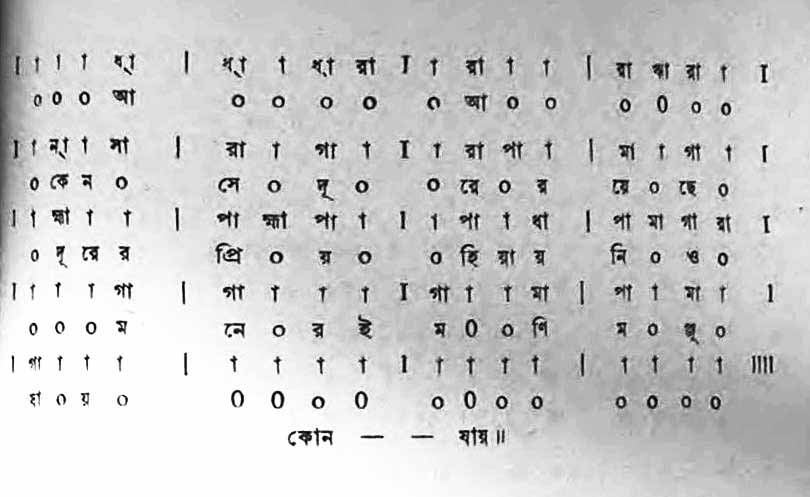 I † † † ধ্া | ধ্া † ধ্া রা I † রা † † | রা ঝা রা † I
০ ০ ০ আ ০ ০ ০ ০ ০ আ ০ ০ ০ ০ ০ ০
I † ন্া † সা | রা † গা † I † রা পা † | মা † গা † I
০ কে ন ০ সে ০ দূ ০ ০ রে ০ র য়ে ০ ছে ০
I † হ্মা † † | পা হ্মা পা † I † পা † ধা | পা মা গা রা I
০ দূ রে র প্রি ০ য় ০ ০ হি য়া য় নি ০ ও ০
I † † † গা | গা † † † I গা † † মা | পা † মা † I
০ ০ ০ ম নে ০ র ই ম ০ ০ ণি ম ০ ঞ্জূ ০
| গা † † † | † † † † I † † † † | † † † † IIII
হা ০ য় ০ ০ ০ ০ ০ ০ ০ ০ ০ ০ ০ ০ ০
কোন — — যায়॥